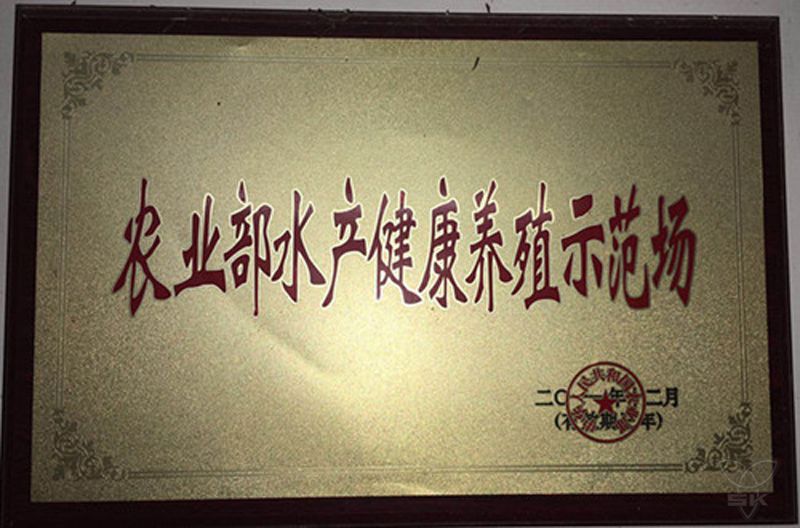 农业部水产健康养殖示范场
人民共和国农业部
二〇一 年 二月
(有效期 年)
SK